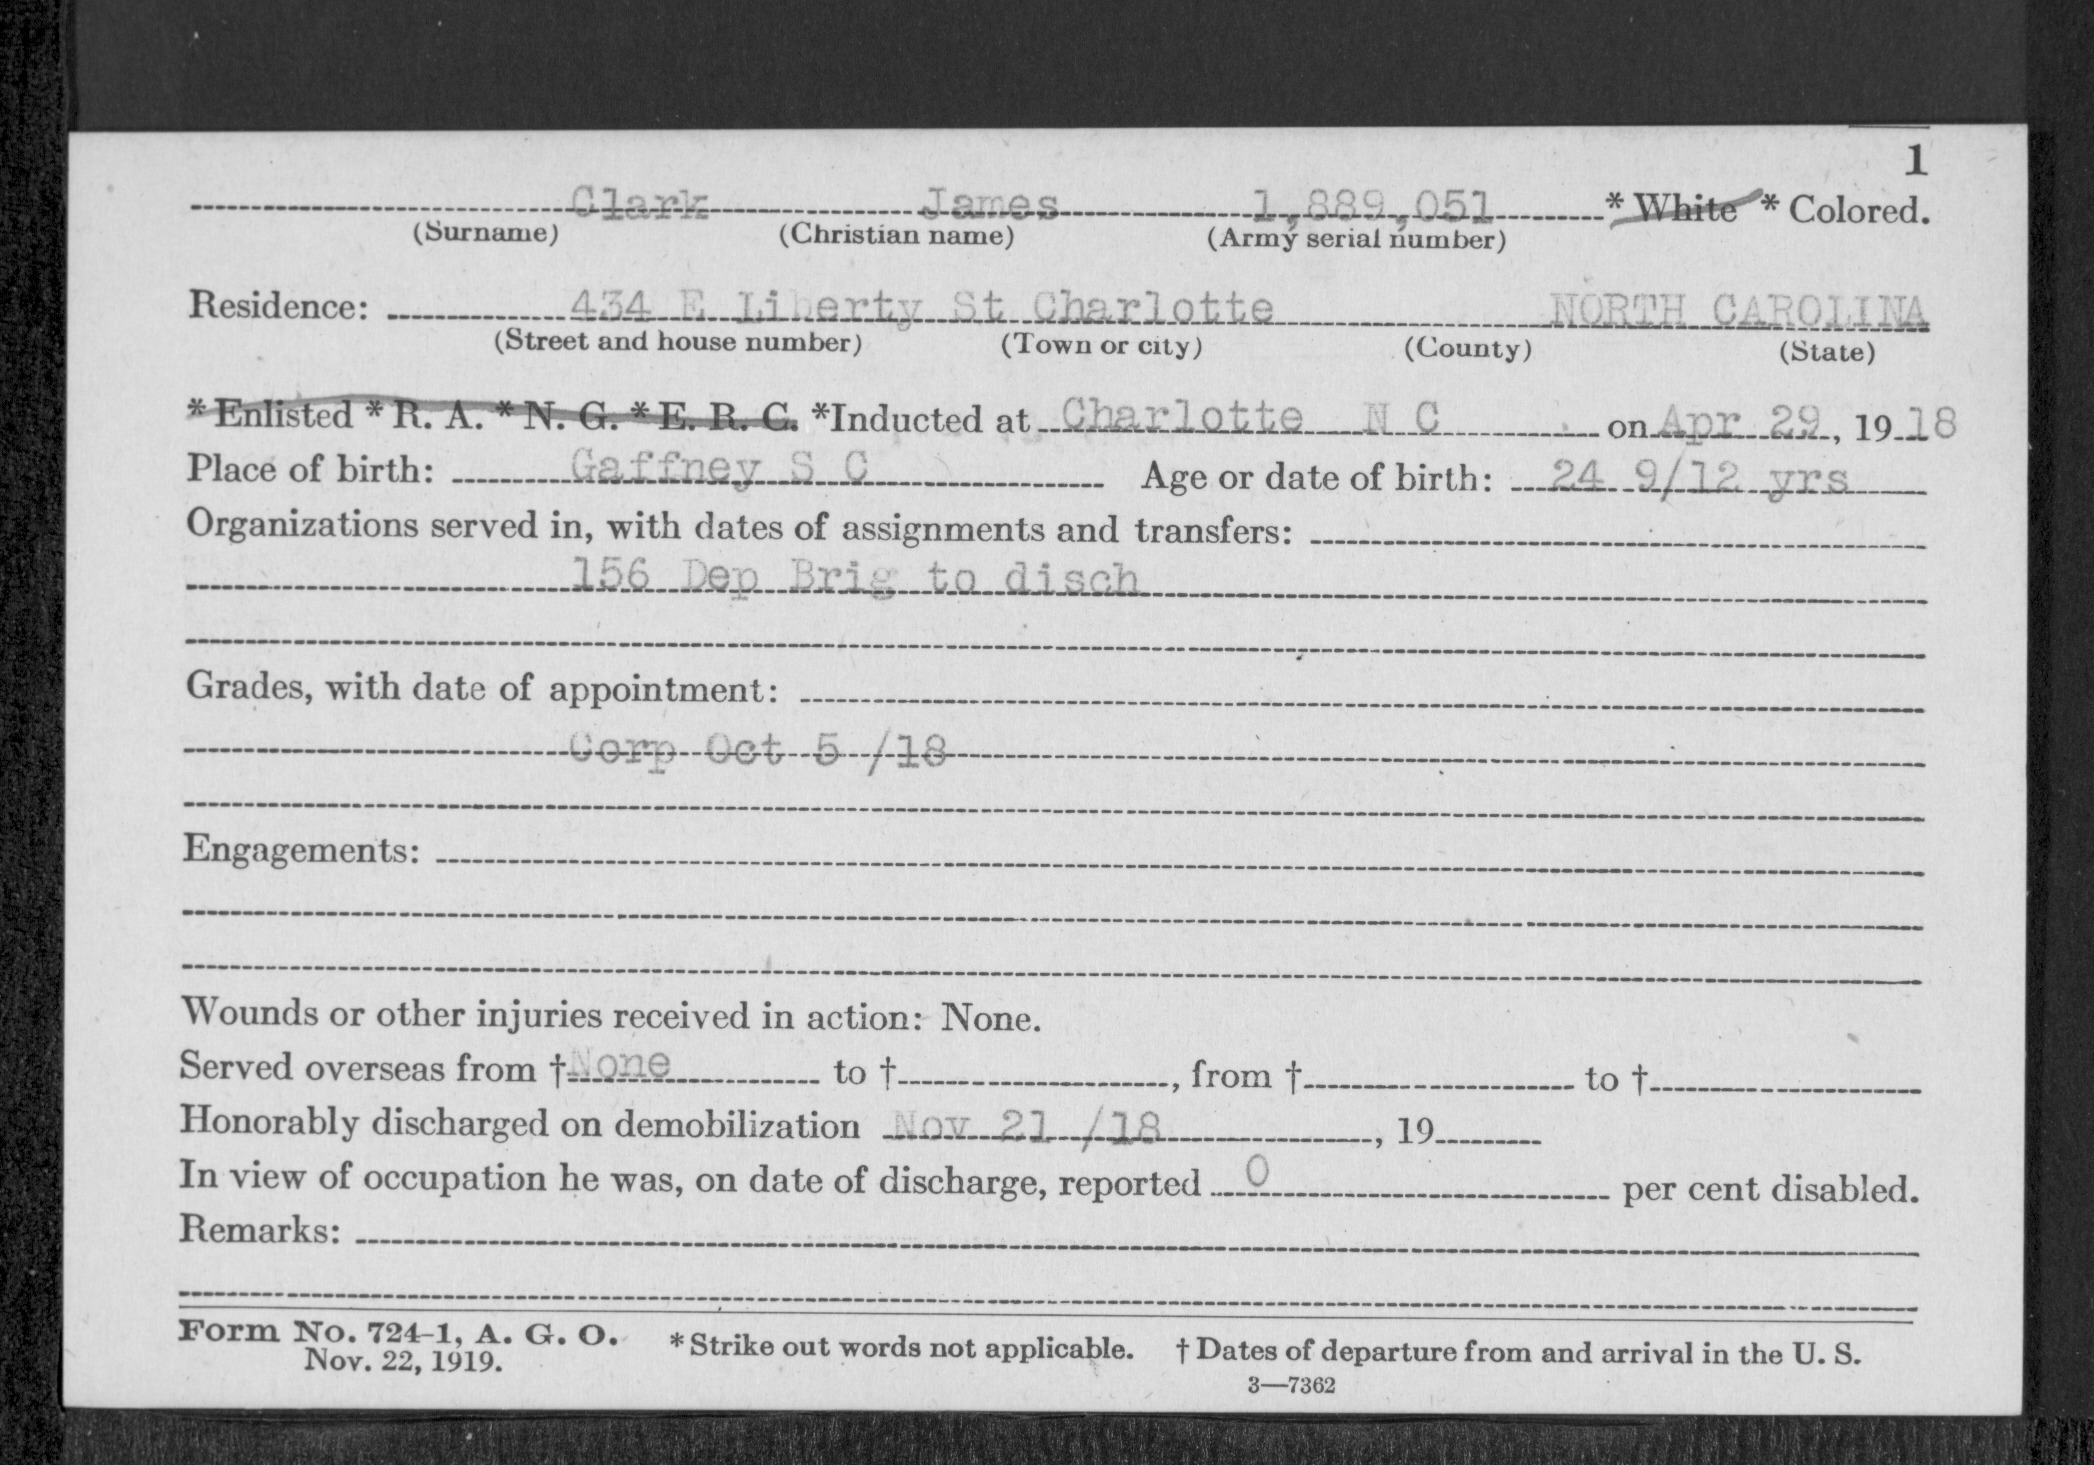 1
Clark James 1,889,051 * White * Colored.
(Surname) (Christian name) (Army serial number)
Residence: 434 E Liberty St Charlotte NORTH CAROLINA
(Street and house number) (Town or city) (County) (State)
* Enlisted * R. A. * N. G. * E. R. C. *Inducted at Charlotte N C on Apr 29, 1918
Place of birth: Gaffney S C Age or date of birth: 24 9/12 yrs
Organizations served in, with dates of assignments and transfers:
156 Dep Brig to disch
Grades, with date of appointment:
Corp Oct 5 /18
Engagements:
Wounds or other injuries received in action: None.
Served overseas from † None to †, from † to †
Honorably discharged on demobilization Nov 21 /18, 19
In view of occupation he was, on date of discharge, reported 0 per cent disabled.
Remarks:
Form No. 724-1, A. G. O. * Strike out words not applicable. † Dates of departure from and arrival in the U. S.
Nov. 22, 1919.
3—7362